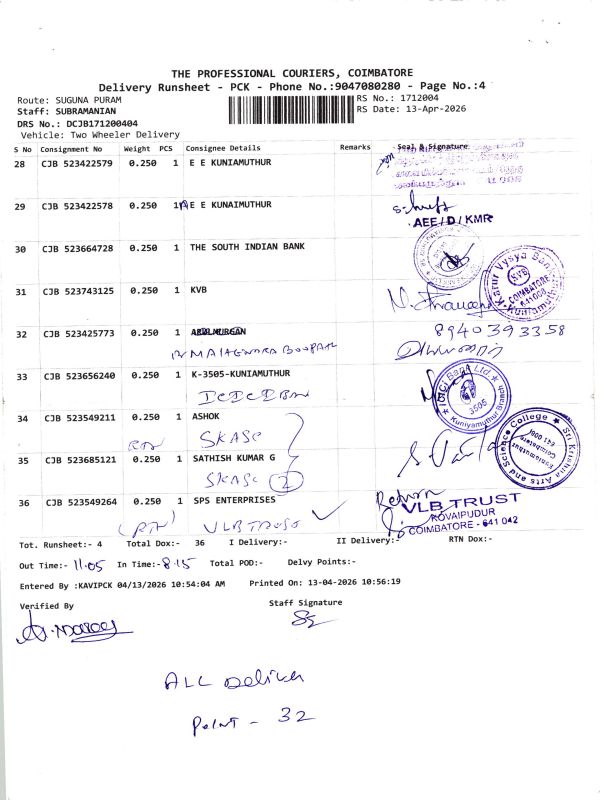 THE PROFESSIONAL COURIERS, COIMBATORE
Delivery Runsheet - PCK - Phone No.:9047080280 - Page No.:4
Route: SUGUNA PURAM
RS No.: 1712004
Staff: SUBRAMANIAN
RS Date: 13-Apr-2026
DRS No.: DCJB171200404
Vehicle: Two Wheeler Delivery
S No Consignment No Weight PCS Consignee Details Remarks Seal & Signature
28 CJB 523422579 0.250 1 E E KUNIAMUTHUR
29 CJB 523422578 0.250 1 E E KUNAIMUTHUR
AEE/D/KMR
30 CJB 523664728 0.250 1 THE SOUTH INDIAN BANK
31 CJB 523743125 0.250 1 KVB
Karur Vysya Bank
KVB
COIMBATORE
641008
Kuniamuthur
32 CJB 523425773 0.250 1
8940393358
33 CJB 523656240 0.250 1 K-3505-KUNIAMUTHUR
ICICI Bank Ltd
3505
Kuniyamuthur Branch
34 CJB 523549211 0.250 1 ASHOK
SKASC
35 CJB 523685121 0.250 1 SATHISH KUMAR G
SKASC 2
Sri Krishna Arts and Science College
Kuniamuthur
Coimbatore
641 008
36 CJB 523549264 0.250 1 SPS ENTERPRISES
VLB TRUST
Return
VLB TRUST
KOVAIPUDUR
COIMBATORE - 641 042
Tot. Runsheet:- 4 Total Dox:- 36 I Delivery:- II Delivery:- RTN Dox:-
Out Time:- 11.05 In Time:- 8.15 Total POD:- Delvy Points:-
Entered By :KAVIPCK 04/13/2026 10:54:04 AM Printed On: 13-04-2026 10:56:19
Verified By Staff Signature
ALL Deliver
Point - 32